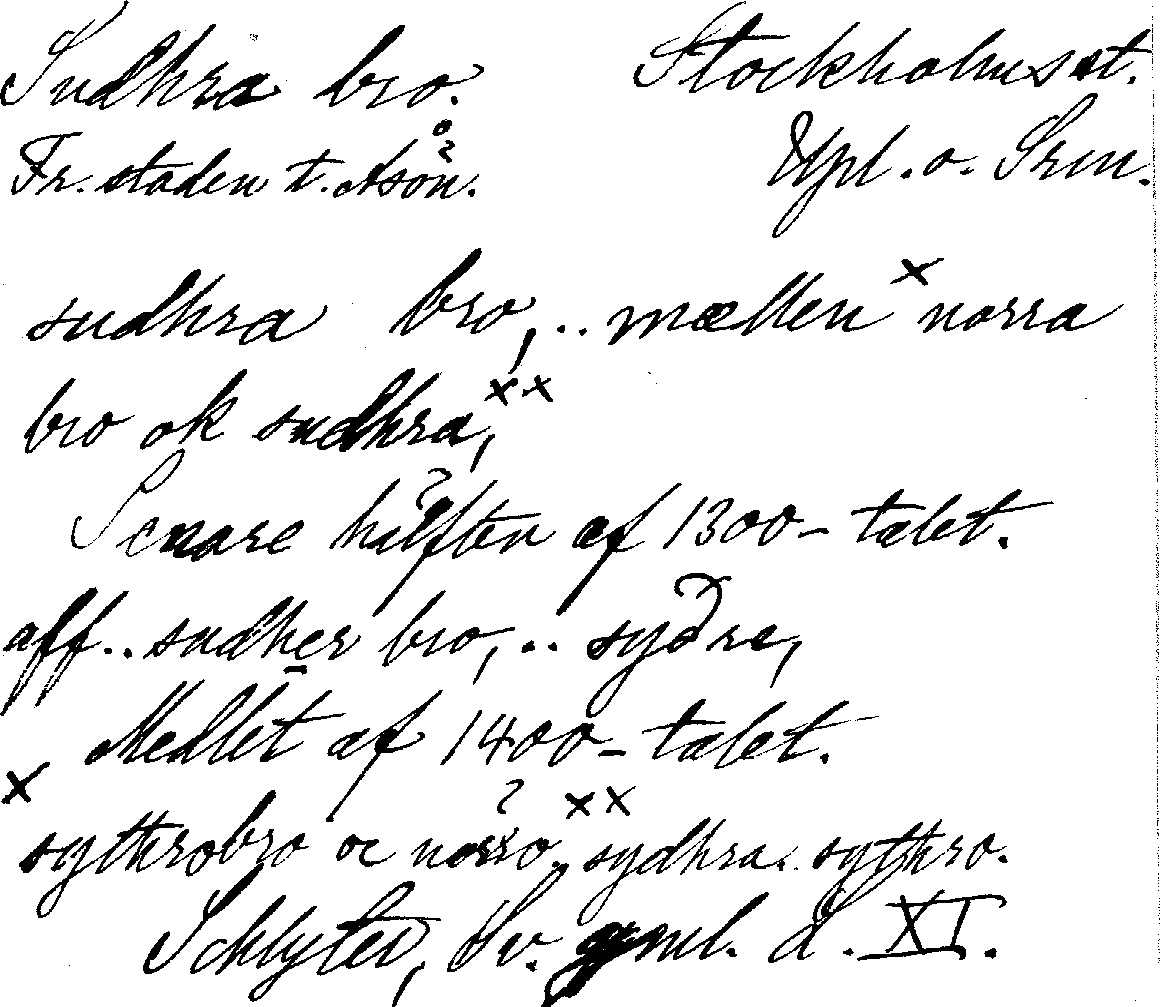 Sudhra bro. Stockholms st.
Fr. staden t. Åsön. Upl. o. Srm.
sudhra bro, .. mællen × norra
bro ok sudhra, ××
Senare hälften af 1300-talet.
aff .. sudher bro, .. sydre,
Medlet af 1400-talet.
× sythrobro oc nörro, ×× sydhra. sythro.
Schlyter, Sv. gml. d. XI.